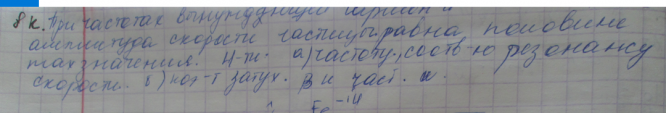 8к. При частотах вынуждающей гармон и
амплитуда скорости частицы равна половине
max значения. Н-ти. а) частоту, соотв-ю резонансу
скорости. б) коэ-т затух. β и част.